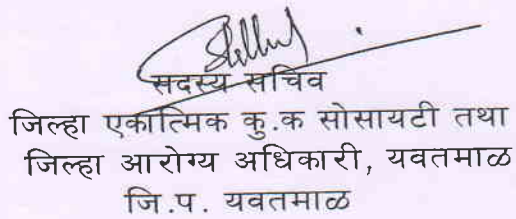 सदस्य सचिव
जिल्हा एकात्मिक कु.क सोसायटी तथा
जिल्हा आरोग्य अधिकारी, यवतमाळ
जि.प. यवतमाळ